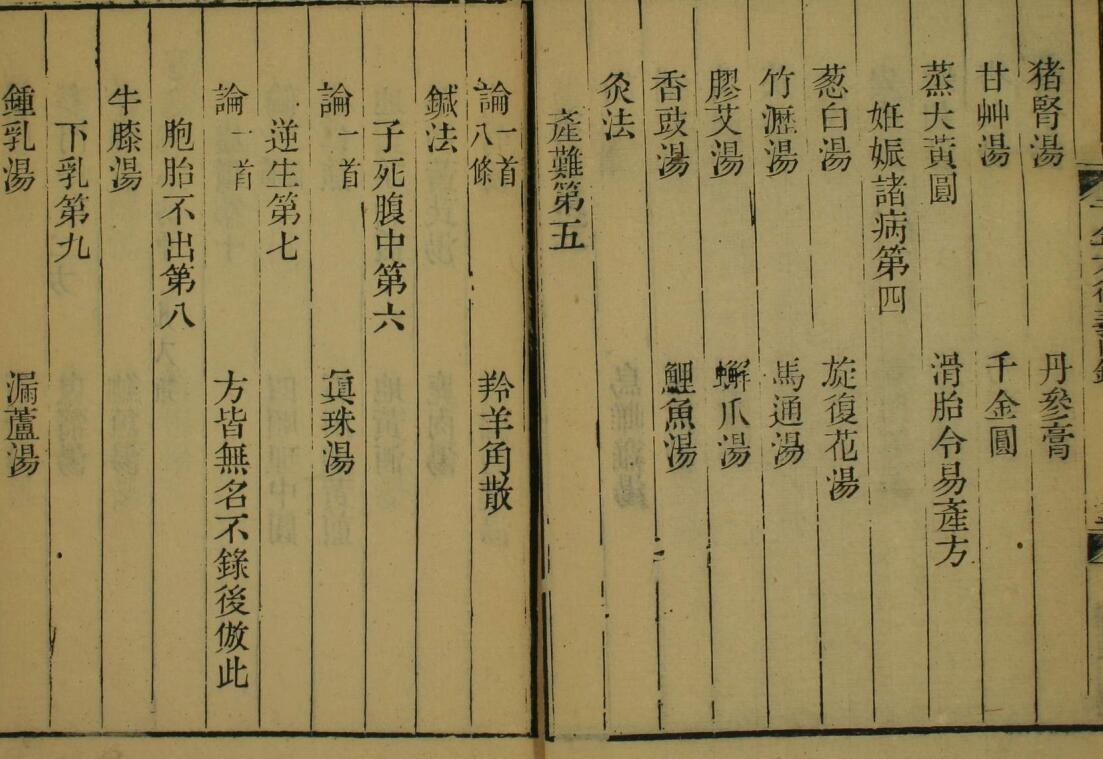 猪腎湯 丹參膏
甘艸湯 千金圓
蒸大黃圓 滑胎令易產方
妊娠諸病第四
葱白湯 旋復花湯
竹瀝湯 馬通湯
膠艾湯 蠏爪湯
香豉湯 鯉魚湯
灸法
產難第五
論一首八條 羚羊角散
鍼法
子死腹中第六
論一首 眞珠湯
逆生第七
論一首 方皆無名不錄後倣此
胞胎不出第八
牛膝湯
下乳第九
鍾乳湯 漏蘆湯